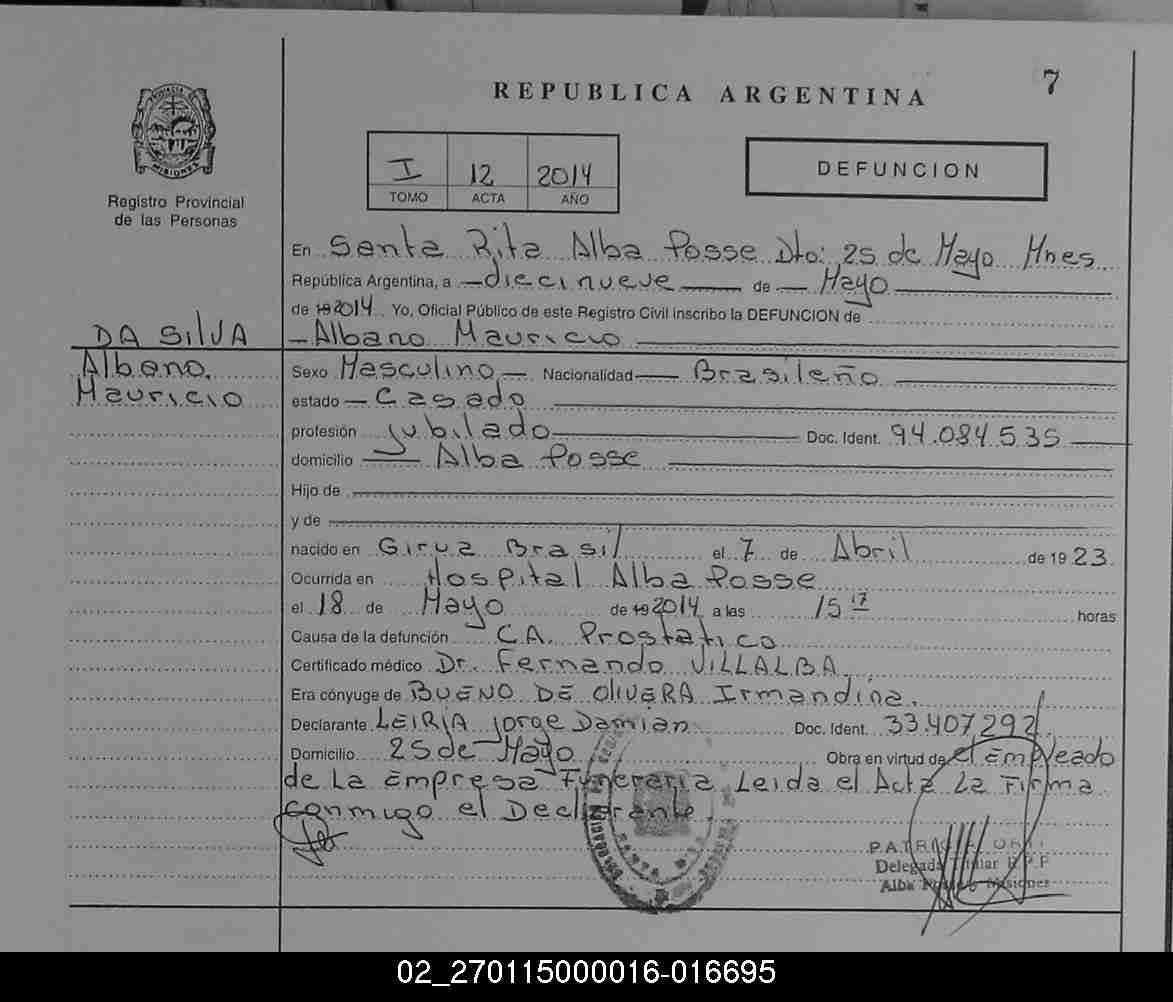 7
REPUBLICA ARGENTINA
I 12 2014
TOMO ACTA AÑO
DEFUNCION
MISIONES
Registro Provincial
de las Personas
DA SILVA
Albano
Mauricio
En Santa Rita Alba Posse Dto: 25 de Mayo Mnes
República Argentina, a diecinueve de Mayo
de 19 2014 Yo, Oficial Público de este Registro Civil inscribo la DEFUNCION de
Albano Mauricio
Sexo Masculino Nacionalidad Brasileño
estado Casado
profesión jubilado Doc. Ident. 94.084.535
domicilio Alba Posse
Hijo de
y de
nacido en Girua Brasil el 7 de Abril de 19 23
Ocurrida en Hospital Alba Posse
el 18 de Mayo de 19 2014 a las 15 17 horas
Causa de la defunción CA. Prostatico
Certificado médico Dr. Fernando VILLALBA
Era cónyuge de BUENO DE OLIVERA Irmandina.
Declarante LEIRIA Jorge Damian Doc. Ident. 33.407.292
Domicilio 25 de Mayo Obra en virtud de el Empleado
de La Empresa Funeraria Leida el Acta La Firma
conmigo el Declarante.
Delegada Titular R.P.P
Alba Posse Misiones
02_270115000016-016695